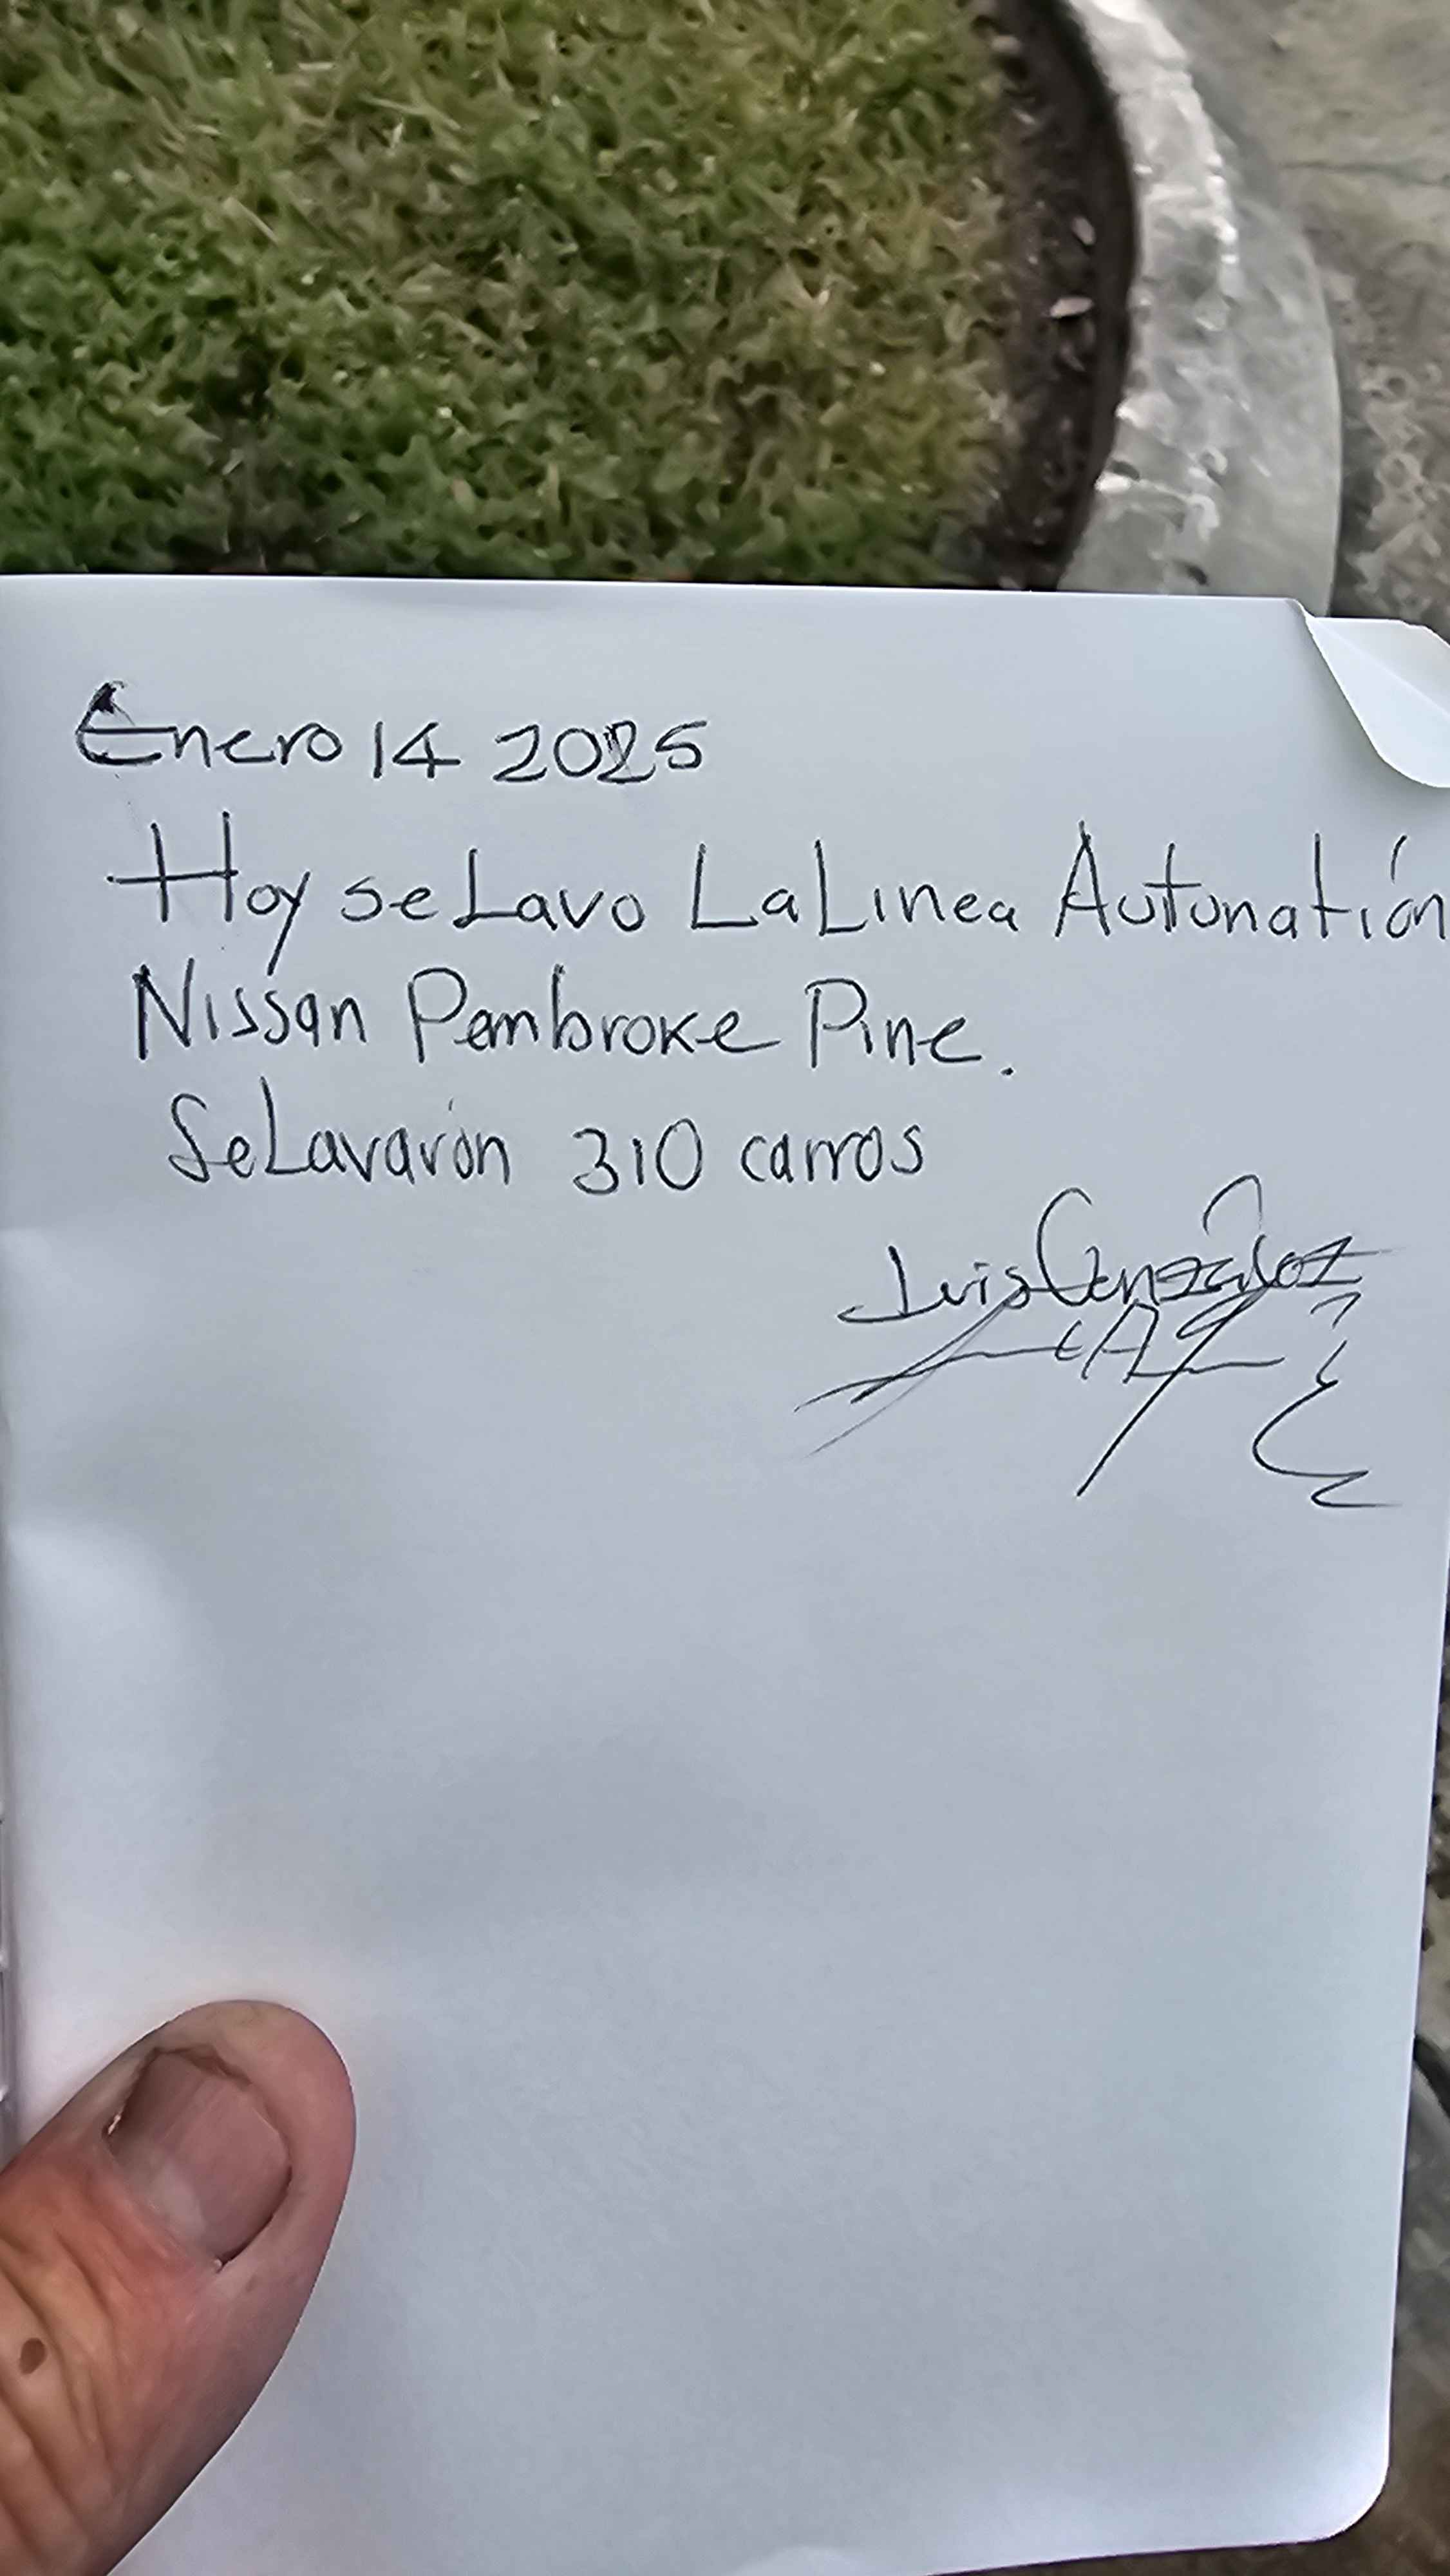 Enero 14 2025
Hoy se Lavo La Linea Autonatión
Nissan Pembroke Pine.
Se Lavarón 310 carros
Luis González